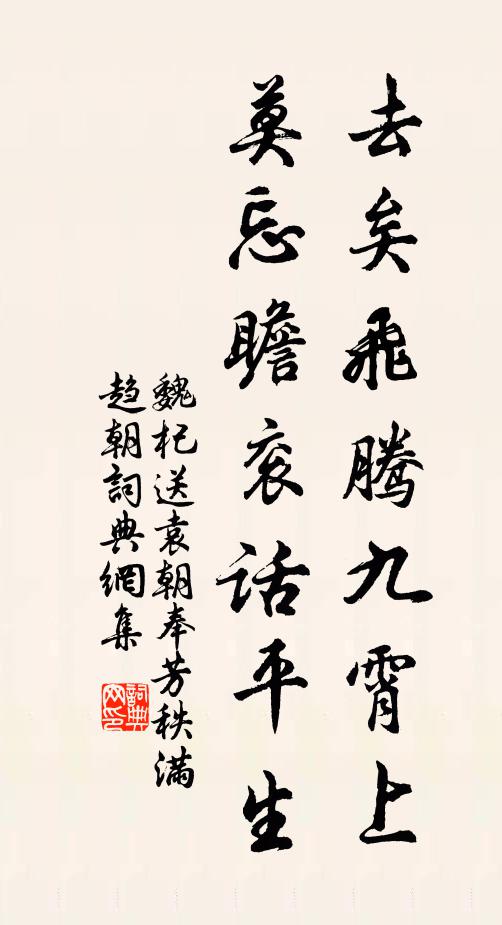 去矣飛騰九霄上
莫忘瞻衮話平生
魏杞送袁朝奉芳秩滿
趋朝詞典網集
詞典网印